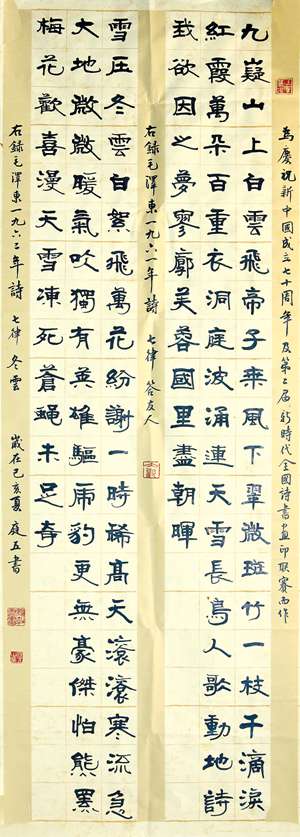 為慶祝新中國成立七十周年及第七届新時代全國詩書画印联賽而作
九嶷山上白雲飛帝子乘風下翠微斑竹一枝千滴淚
紅霞萬朵百重衣洞庭波涌連天雪長島人歌動地詩
我欲因之夢寥廓芙蓉國里盡朝暉
右録毛澤東一九六一年詩 七律 答友人
雪压冬雲白絮飛萬花紛謝一時稀高天滚滚寒流急
大地微微暖氣吹獨有英雄驅虎豹更無豪傑怕熊羆
梅花歡喜漫天雪凍死蒼蠅未足奇
右録毛澤東一九六二年詩 七律 冬雲 歲在己亥夏 庭五書